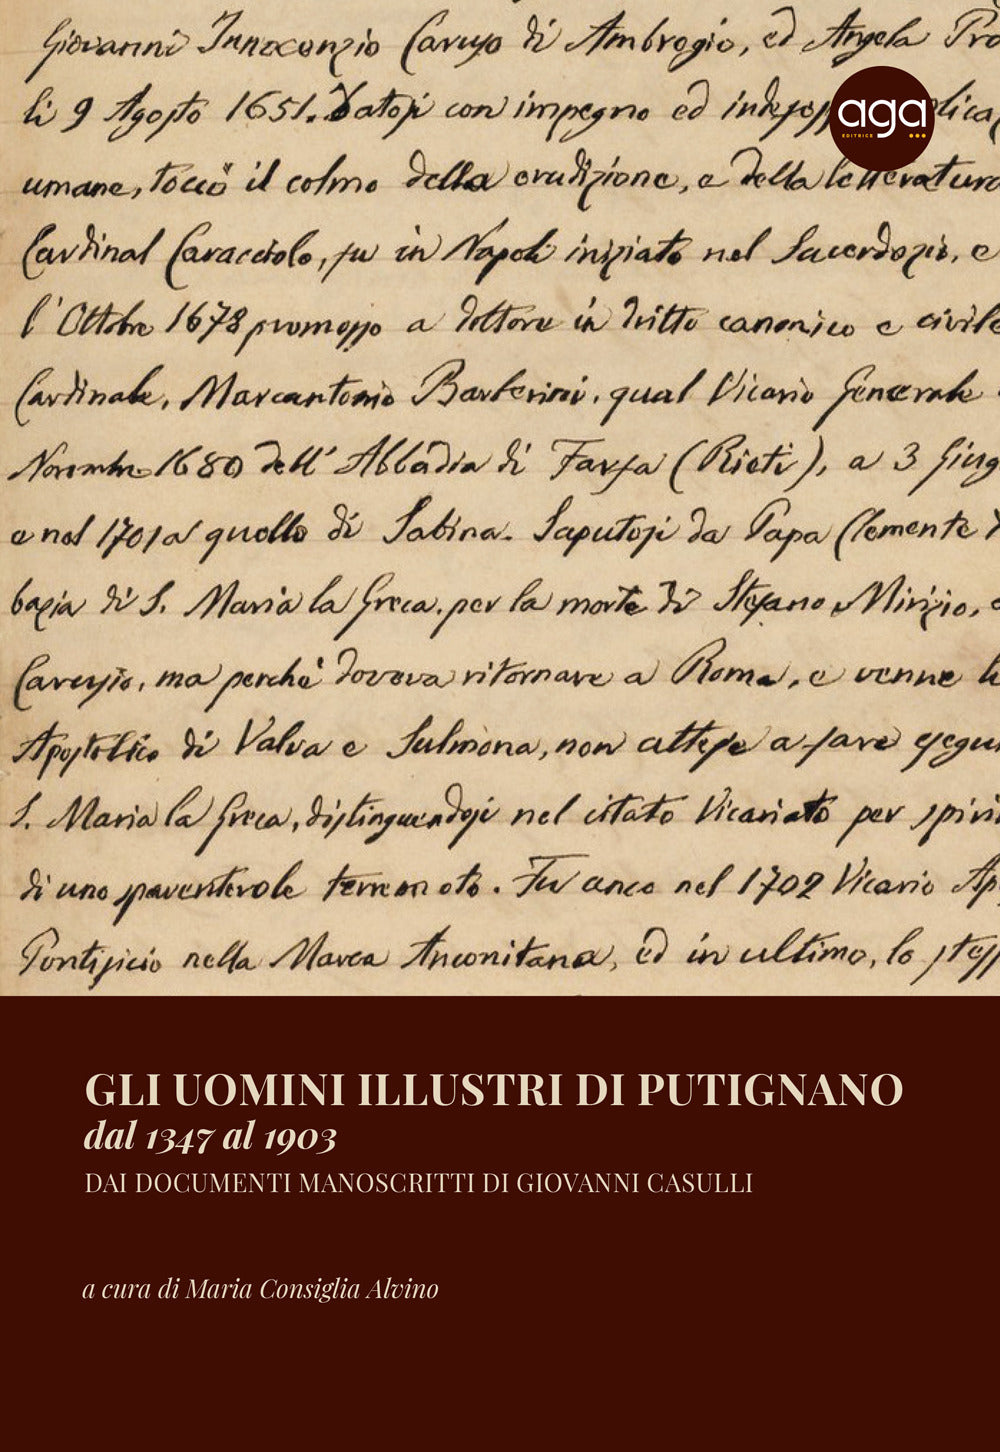 Giovanni Innocenzio Caruso di Ambrogio, ed Angela Pro
li 9 Agosto 1651. Datosi con impegno ed indefess plica
umane, toccò il colmo della erudizione, e della letteratura
Cardinal Caracciolo, fu in Napoli iniziato nel Sacerdozio, e
l'Ottobre 1678 promosso a dottore in dritto canonico e civile
Cardinale, Marcantonio Barberini, qual Vicario Generale
Novembre 1680 dell'Abbadia di Farfa (Rieti), a 3 Giug
e nel 1701 a quello di Sabina. Saputosi da Papa Clemente X
bazia di S. Maria la Greca, per la morte di Stefano Mirizio, e
ma perchè doveva ritornare a Roma, e venne
Apostolico di Valva e Sulmona, non attese a fare esegui
S. Maria la Greca, distinguendosi nel citato Vicariato per spiri
di uno spaventevole terremoto. Fu anco nel 1702 Vicario Ap
Pontificio nella Marca Anconitana, ed in ultimo, lo stess
aga
EDITRICE
GLI UOMINI ILLUSTRI DI PUTIGNANO
dal 1347 al 1903
DAI DOCUMENTI MANOSCRITTI DI GIOVANNI CASULLI
a cura di Maria Consiglia Alvino